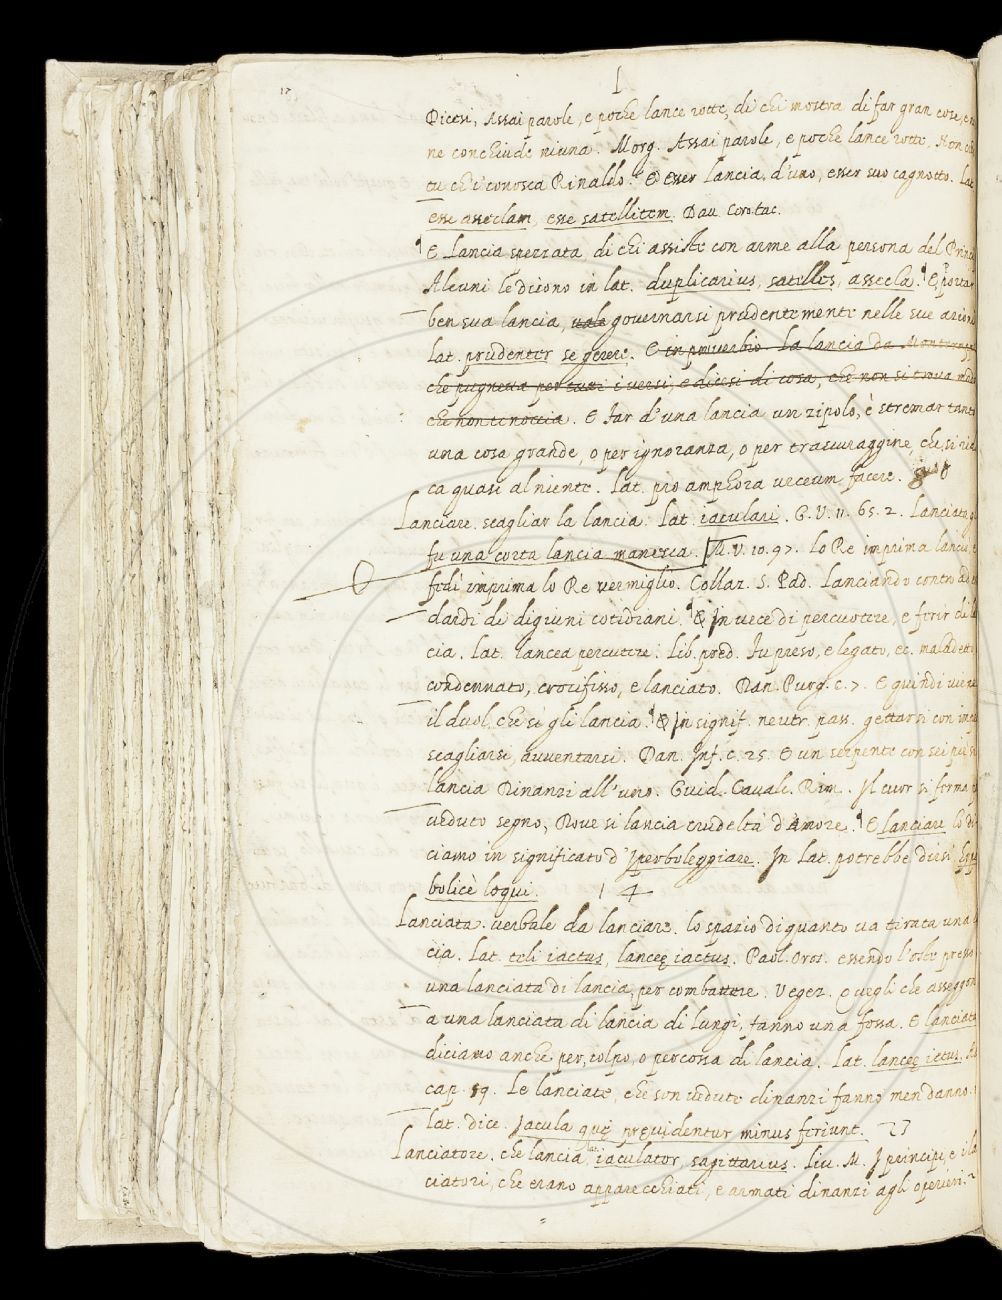 L
Dicesi, Assai parole, e poche lance rotte, di chi mostra di far gran cose, e
ne conchiude niuna. Morg. Assai parole, e poche lance rotte, Non
tu ch'i' conosca Rinaldo. E Esser lancia, d'uno, esser suo cagnotto. Lat
esse asseclam, esse satellitem. Dau. Corn. tac.
E Lancia spezzata di chi assiste con arme alla persona del Princ
Alcuni le dicono in lat. duplicarius, satelles, assecla. E portar
ben sua lancia, uale governarsi prudentemente nelle sue azioni
lat. prudenter se gerere. E in prouerbio. La lancia da Monterapp
che pugneua per tutti i versi, e dicesi di cosa, che non si troua
che non ti noccia. E Far d'una lancia un zipolo, è stremar tanto
una cosa grande, o per ignoranza, o per trascuraggine, che si ridu
ca quasi al niente. Lat. pro amphora urceum facere.
Lanciare. scagliar la lancia. Lat. iaculari. G. V. 11. 65. 2. Lanciato gli
fu una corta lancia manesca. M. V. 10. 97. Lo Re imprima lancia, e
fedì imprima lo Re vermiglio. Collaz. S. Pad. Lanciando contro ad
dardi di digiuni cotidiani. E In vece di percuotere, e ferir di la
cia. Lat. lancea percutere. Lib. pred. Fu preso, e legato, ec. maladetto
condennato, crocifisso, e lanciato. Dan. Purg. c. 7. E quindi viene
il duol, che sì gli lancia. E In signif. neutr. pass. gettarsi con imp
scagliarsi, avventarsi. Dan. Inf. c. 25. E un serpente con sei piè si
lancia Dinanzi all'uno. Guid. Caualc. Rim. Il cuor si ferma
veduto segno, Doue si lancia crudeltà d'Amore. E lanciare lo di
ciamo in significato d'Iperboleggiare. In Lat. potrebbe dirsi hyper
bolicè loqui. 1 4
Lanciata. uerbale da lanciare. lo spazio di quanto va tirata una
cia. Lat. teli iactus, lanceę iactus. Paol. Oros. essendo l'oste presso
una lanciata di lancia, per combattere. Vegez. quegli che asseggon
a una lanciata di lancia di lungi, fanno una fossa. E lanciata
diciamo anche per, colpo, o percossa di lancia. Lat. lanceę ictus.
cap. 59. Le lanciate, che son vedute dinanzi fanno men danno.
lat. dice. Iacula quę pręuidentur minus feriunt.
Lanciatore. che lancia, lat. iaculator, sagittarius. Liu. M. I principi, e i la
ciatori, che erano apparecchiati, e armati dinanzi agli operieri.